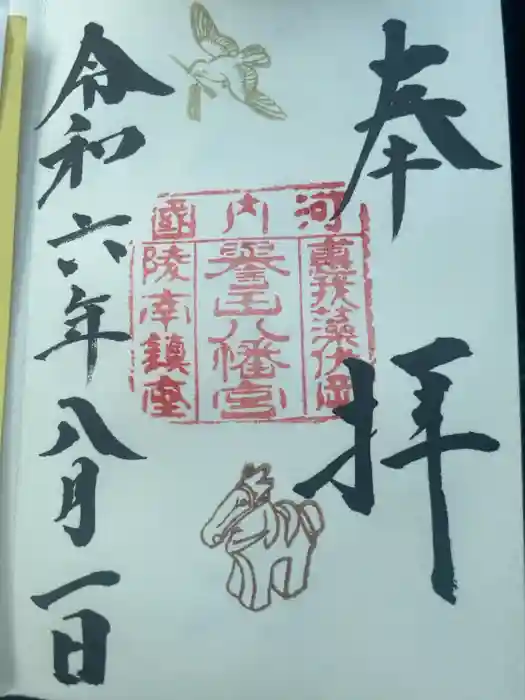 奉拝
河内國
惠我藻伏岡
譽田八幡宮
陵南鎮座
令和六年八月一日